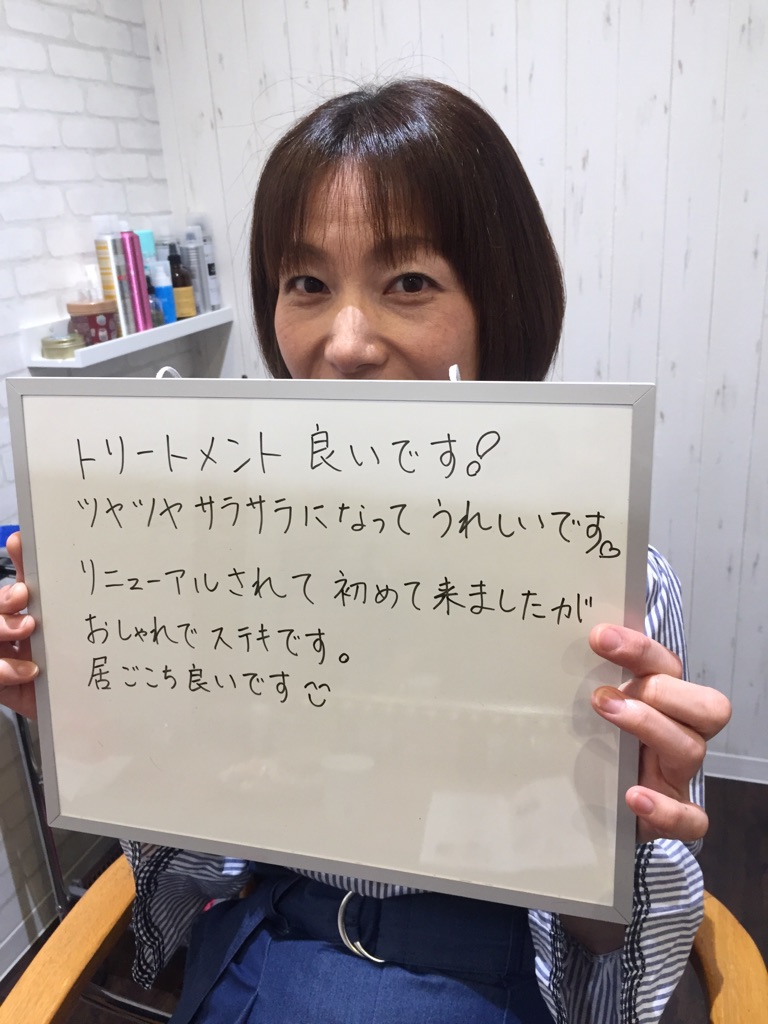 トリートメント 良いです!
ツヤツヤ サラサラになって うれしいです♡
リニューアルされて 初めて来ましたが
おしゃれで ステキです。
居ごこち良いです